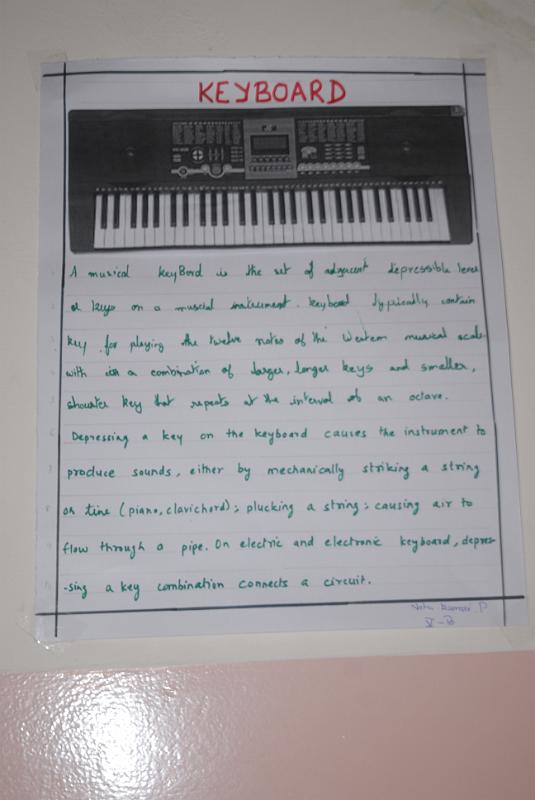 KEYBOARD
A musical keyBord is the set of adjacent depressible lever
or keys on a muscial instrument. keyboard typically contain
key for playing the twelve notes of the Western musical scale
with a combination of larger, longer keys and smaller,
shouter key that repeats at the interval of an octave.
Depressing a key on the keyboard causes the instrument to
produce sounds, either by mechanically striking a string
or tine (piano, clavichord); plucking a string; causing air to
flow through a pipe. On electric and electronic keyboard, depres-
-sing a key combination connects a circuit.
Kumari P
V-B